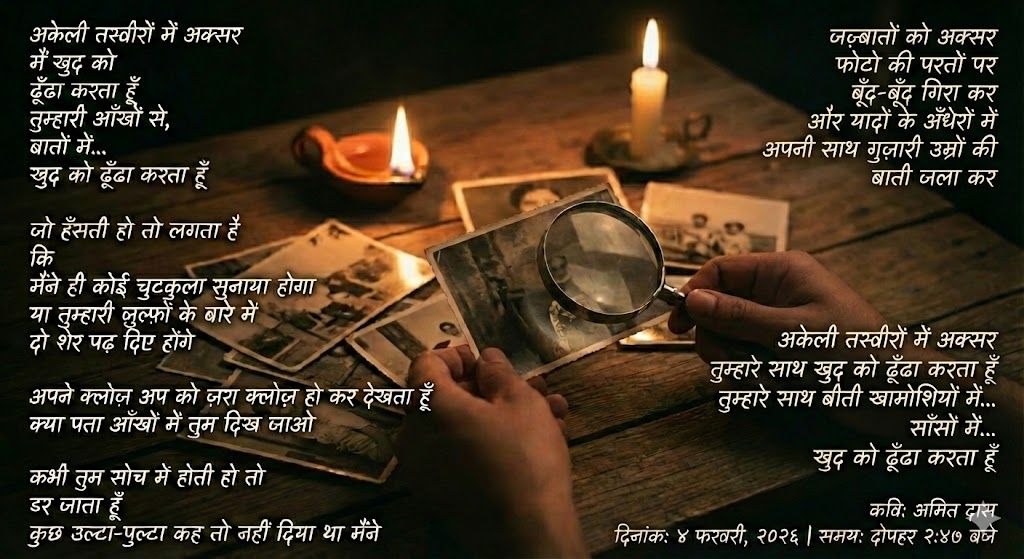 अकेली तस्वीरों में अक्सर
मैं खुद को
ढूँढा करता हूँ
तुम्हारी आँखों से,
बातों में...
खुद को ढूँढा करता हूँ
जो हँसती हो तो लगता है
कि
मैंने ही कोई चुटकुला सुनाया होगा
या तुम्हारी ज़ुल्फ़ों के बारे में
दो शेर पढ़ दिए होंगे
अपने क्लोज़ अप को ज़रा क्लोज़ हो कर देखता हूँ
क्या पता आँखों में तुम दिख जाओ
कभी तुम सोच में होती हो तो
डर जाता हूँ
कुछ उल्टा-पुल्टा कह तो नहीं दिया था मैंने
जज़्बातों को अक्सर
फोटो की परतों पर
बूँद-बूँद गिरा कर
और यादों के अँधेरों में
अपनी साथ गुज़ारी उम्रों की
बाती जला कर
अकेली तस्वीरों में अक्सर
तुम्हारे साथ खुद को ढूँढा करता हूँ
तुम्हारे साथ बीती खामोशियों में...
साँसों में...
खुद को ढूँढा करता हूँ
कवि: अमित दास
दिनांक: ४ फरवरी, २०२६ | समय: दोपहर २:४७ बजे